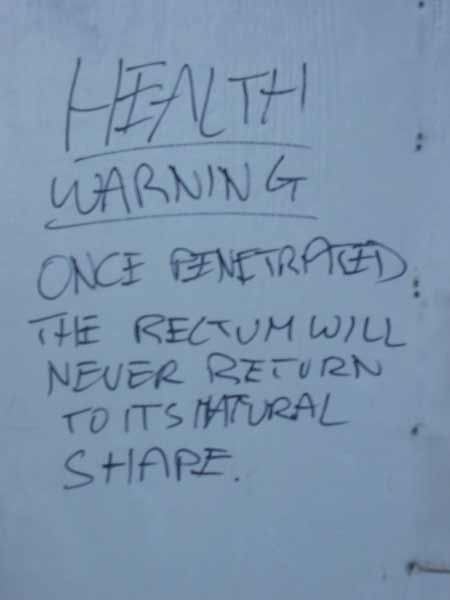 HEALTH
WARNING
ONCE PENETRATED
THE RECTUM WILL
NEVER RETURN
TO ITS NATURAL
SHAPE.